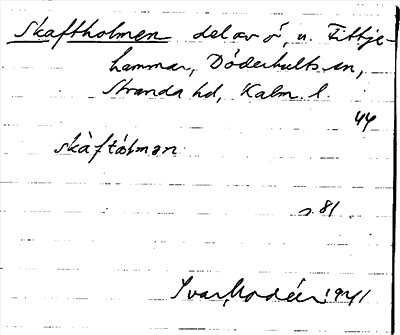 Skaftholmen del av ö, u. Fittje-
hammar, Döderhults sn,
Stranda hd, Kalm. l.
44
skàftólman
s. 81
Ivar Modéer 1941